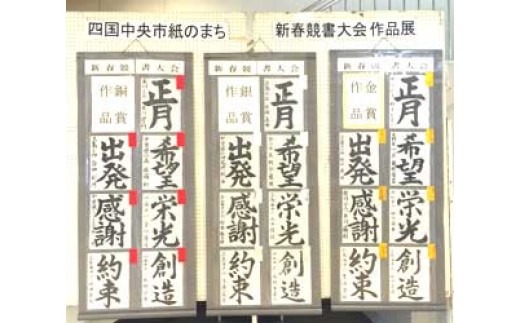 四国中央市紙のまち 新春競書大会作品展
新春競書大会
銅賞作品
正月
希望
栄光
創造
出発
感謝
約束
新春競書大会
銀賞作品
正月
希望
栄光
創造
出発
感謝
約束
新春競書大会
金賞作品
正月
希望
栄光
創造
出発
感謝
約束